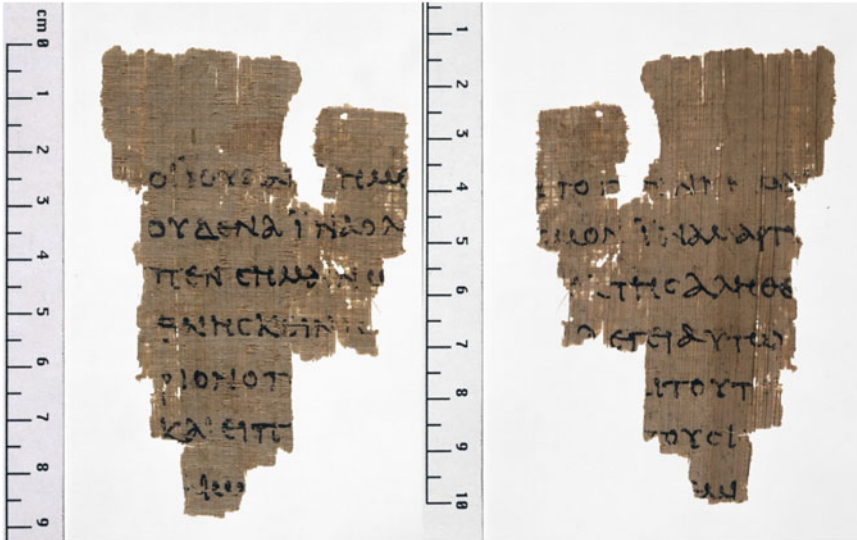 cm 0 1 2 3 4 5 6 7 8 9
ΟΙ ΙΟΥΔΑΙ ΗΜΕ
ΟΥΔΕΝΑ ΪΝΑ Ο Λ
ΠΕΝ ϹΗΜΑΙΝΩ
ΘΝΗϹΚΕΙΝ
ΡΙΟΝ Ο Π
ΚΑΙ ΕΙΠ
1 2 3 4 5 6 7 8 9 10
ΤΟ
ϹΜΟΝ ΪΝΑ ΜΑΡΤΥ
ΤΗϹ ΑΛΗΘΕ
ΛΕΓΕΙ ΑΥΤΩ
ΑΙ ΤΟΥΤ
ΤΟΥϹ Ι